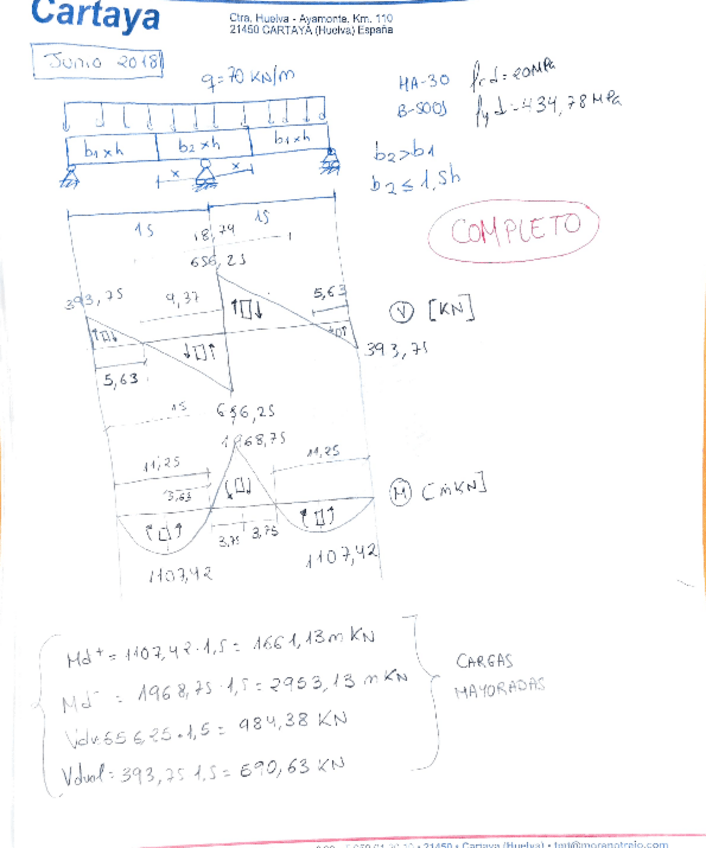 Cartaya
Ctra. Huelva - Ayamonte. Km. 110
21450 CARTAYA (Huelva) España
Junio 2018
q=70 KN/m
HA-30 fcd=20MPa
B-500S fyd=434,78 MPa
b1xh b2xh b1xh
b2>b1
b2≤1,5h
x x
15 15
COMPLETO
18,74
656,25
393,75 9,37 5,63
V [KN]
393,75
5,63
15 656,25
1968,75
11,25 11,25
3,63
M [mKN]
3,75 3,75
1107,42 1107,42
Md+ = 1107,42·1,5 = 1661,13 m KN
Md- = 1968,75·1,5 = 2953,13 m KN
Vdv: 656,25·1,5 = 984,38 KN
= 393,75 1.5 = 590,63 KN
CARGAS
MAYORADAS
21450 • Cartaya (Huelva) •